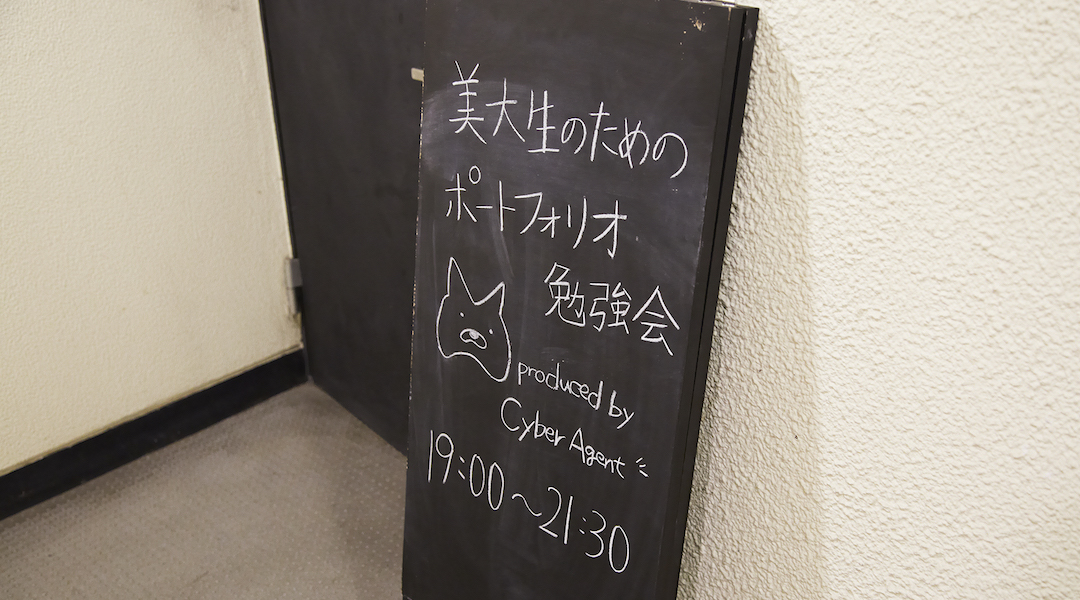 美大生のための
ポートフォリオ
勉強会
produced by
Cyber Agent
19:00～21:30